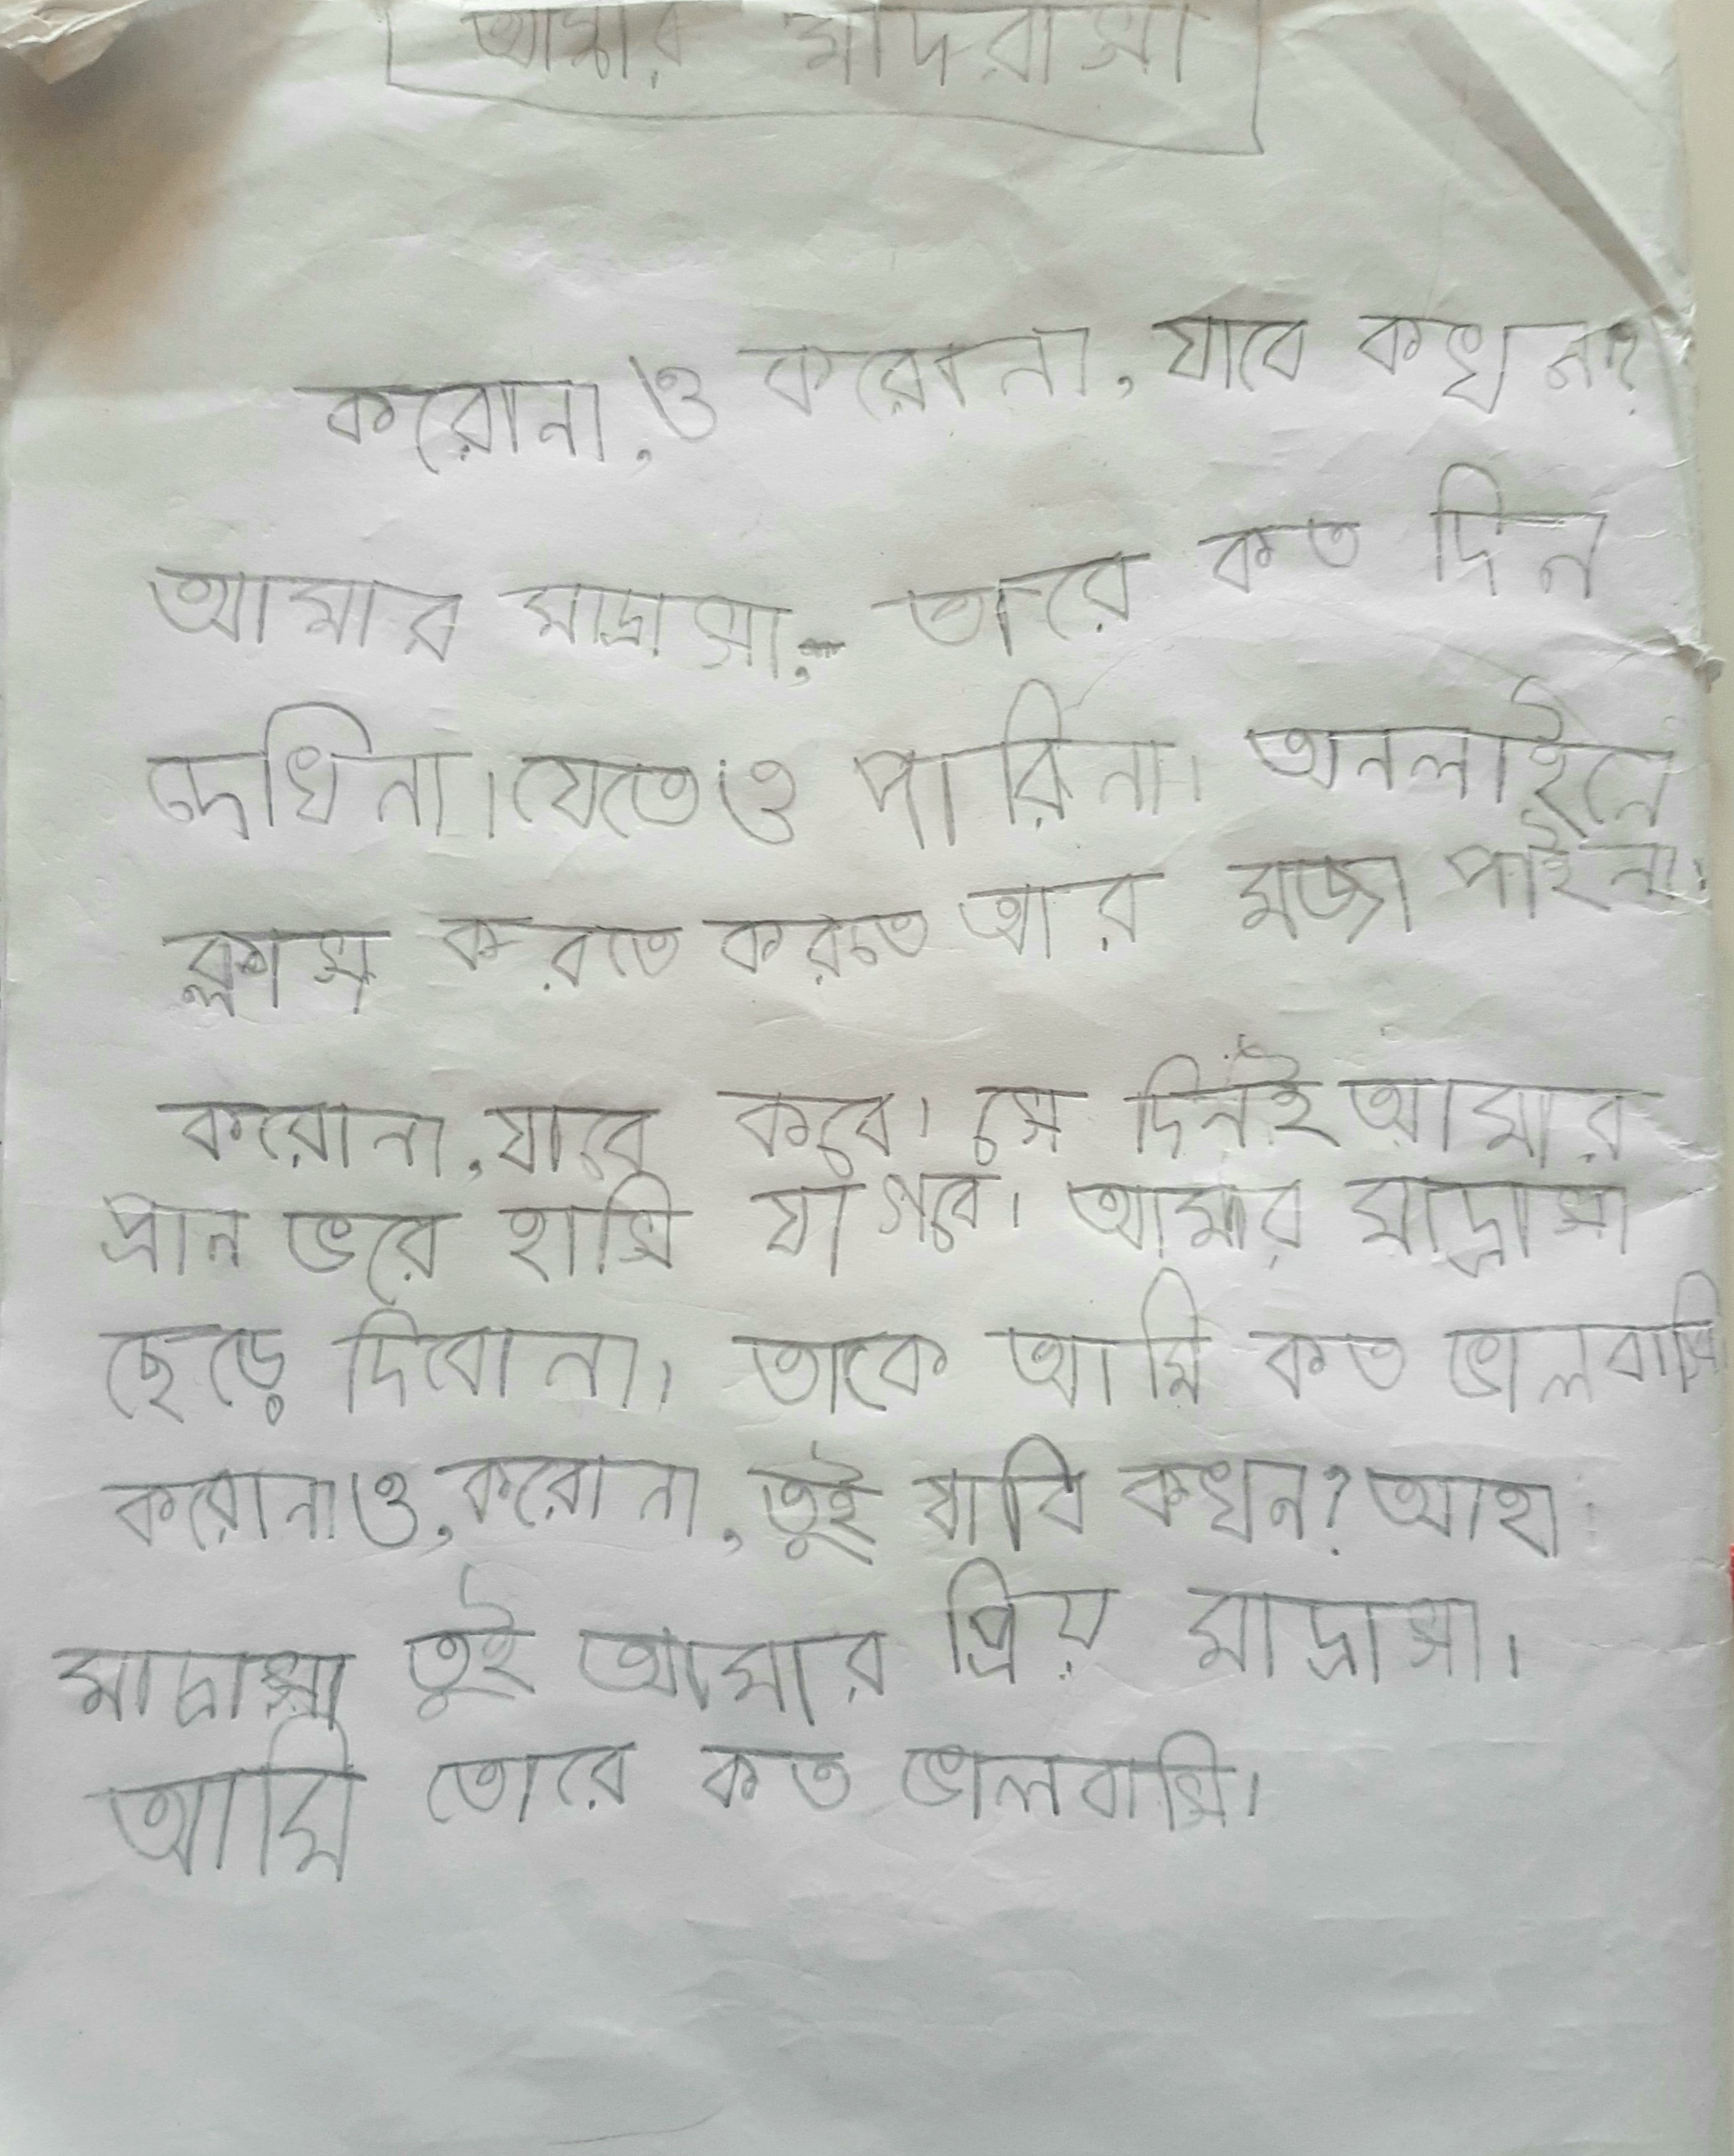 আমার মাদরাসা
করোনা, ও করোনা, যাবে কখন?
আমার মাদ্রাসা, তারে কত দিন
দেখিনা। যেতেও পারিনা। অনলাইনে
ক্লাস করতে করতে আর মজা পাইনা।
করোনা, যাবে কবে। সে দিনই আমার
প্রান ভরে হাসি আমার মাদ্রাসা
ছেড়ে দিবোনা। তাকে আমি কত ভালবাসি
করোনাও, করোনা, তুই যাবি কখন? আহা
মাদ্রাসা তুই আমার প্রিয় মাদ্রাসা।
আমি তোরে কত ভালবাসি।